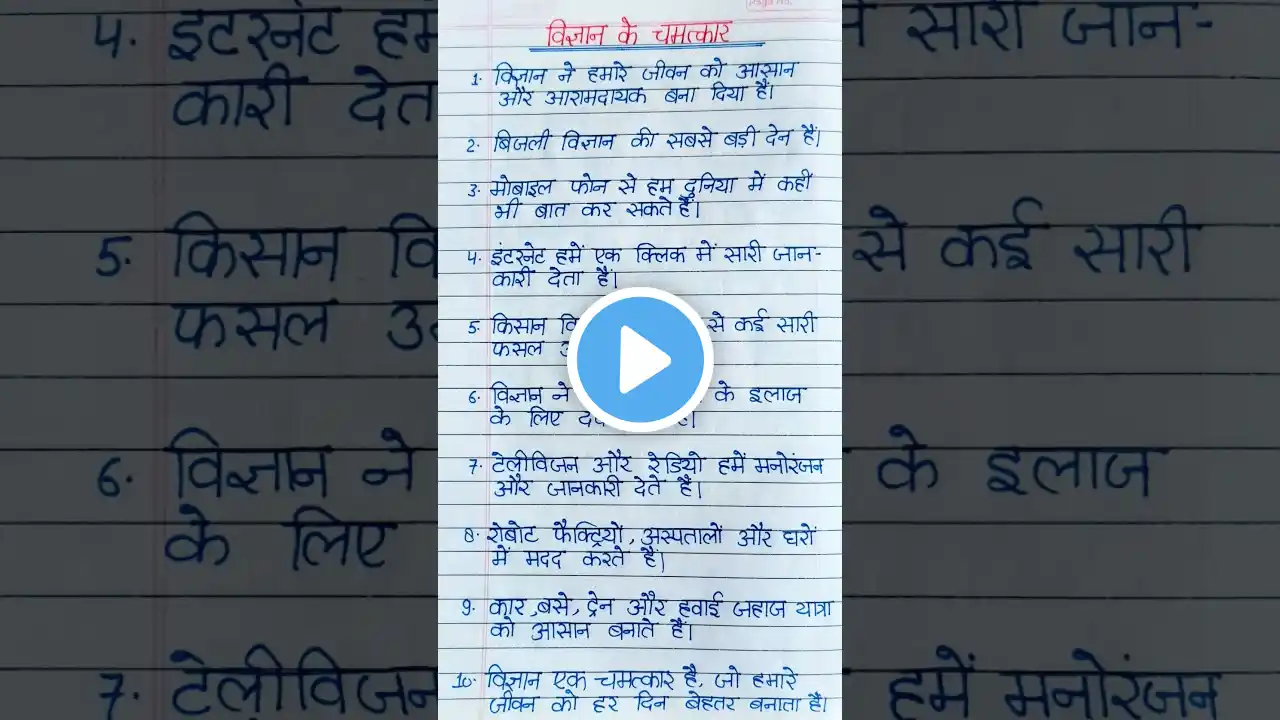 विज्ञान के चमत्कार
1. विज्ञान ने हमारे जीवन को आसान
और आरामदायक बना दिया है।
2. बिजली विज्ञान की सबसे बड़ी देन है।
3. मोबाइल फोन से हम दुनिया में कहीं
भी बात कर सकते है।
4. इंटरनेट हमें एक क्लिक में सारी जान-
कारी देता है।
5. किसान से कई सारी
फसल
6. विज्ञान ने के इलाज
के लिए
7. टेलीविजन और रेडियो हमें मनोरंजन
और जानकारी देते है।
8. रोबोट फैक्ट्रियों, अस्पतालों और घरों
में मदद करते है।
9. कार, बसे, ट्रेन और हवाई जहाज यात्रा
को आसान बनाते है।
10. विज्ञान एक चमत्कार है, जो हमारे
जीवन को हर दिन बेहतर बनाता है।